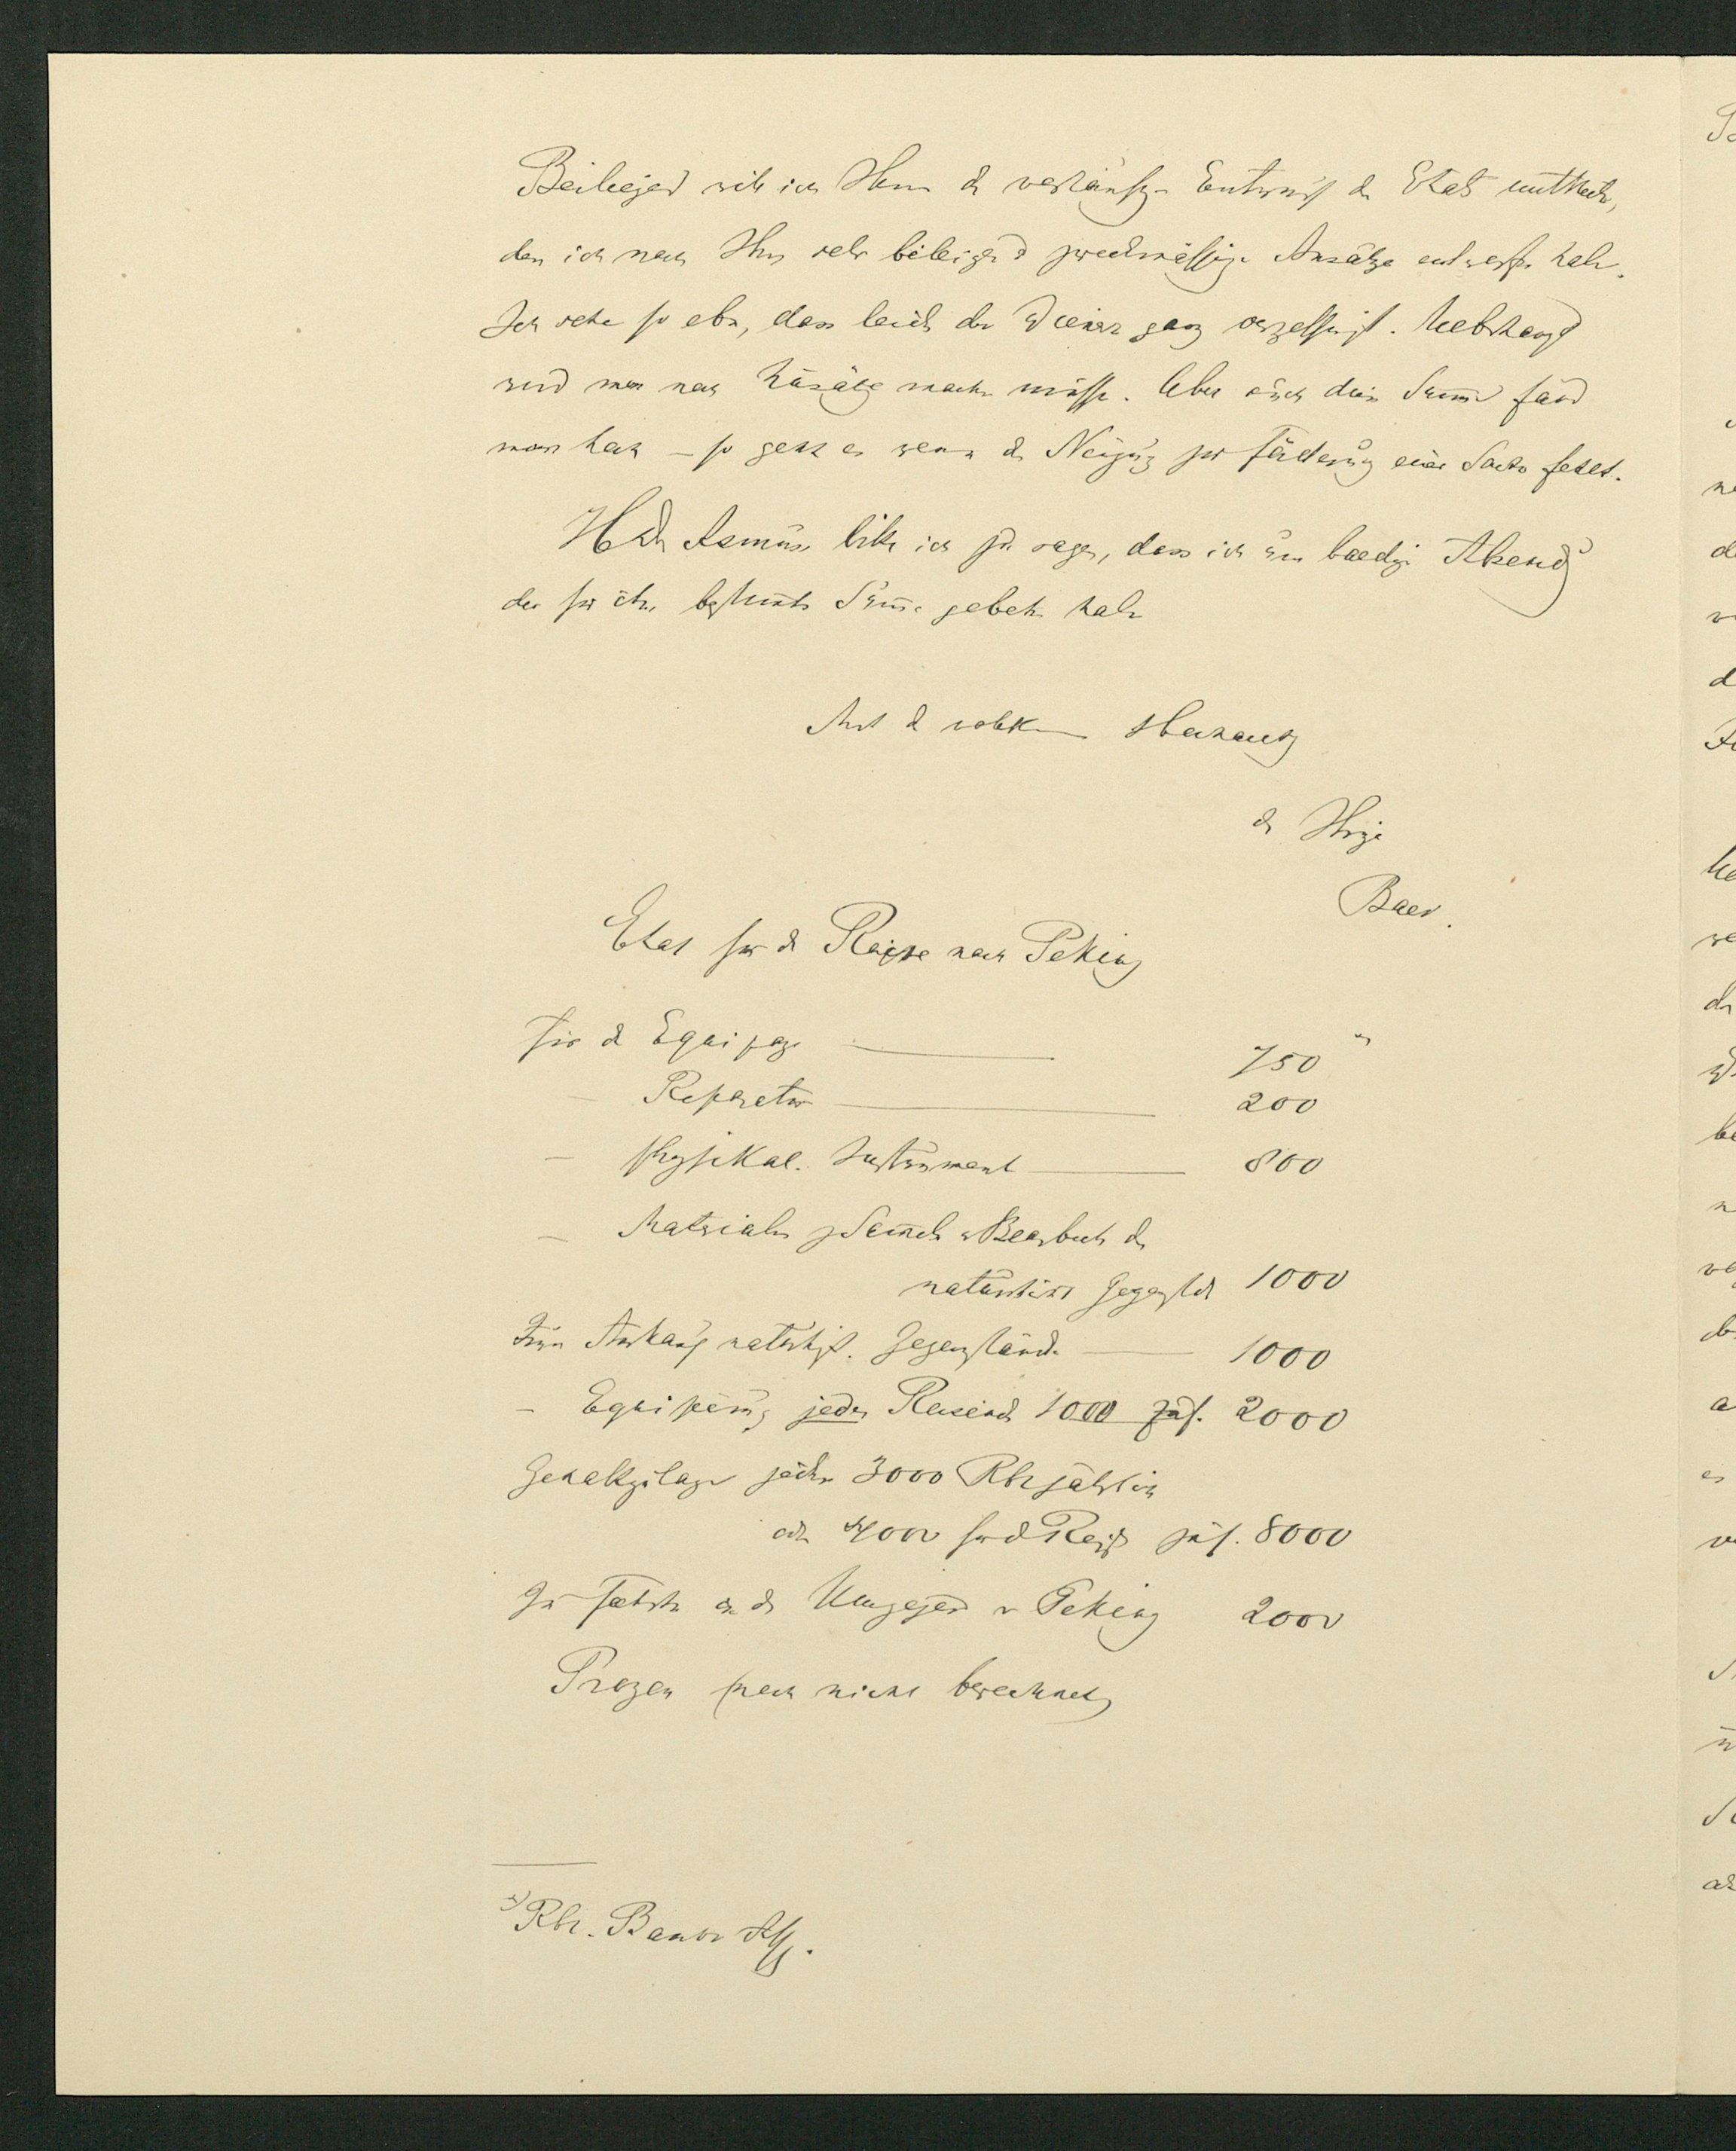 Beiliegend will ich Ihnen den vorläufigen Entwurf des Etats mittheilen,
den ich nach Ihren sehr billigend zweckmässigen Ansätzen entworfen habe.
Ich sehe so eben, dass leider der Diener ganz vergessen ist. Ueberhaupt
wird man noch Zusätze machen müssen. Aber auch diese Summe fand
man hoch – so geht es wenn die Neigung zur Förderung einer Sache fehlt.
H Dr Asmuss bitte ich zu sagen, dass ich um baldige Absend
der für ihn bestimmte Summe gebeten habe
Mit d vollkommen Hochacht
der Ihrige
Baer.
Etat für d Reise nach Peking
Für d Equipage 750
– Reparatur 200
– physikal. Instrument 800
– Materialien z Sammeln u Bearbeit der
naturhist Gegenstd 1000
Zum Ankauf naturhist. Gegenstände 1000
– Equipierung jedes Reisend 1000 zus. 2000
Gehaltzulage jeder 3000 Rbl jährlich
od 4000 für d Reise zus. 8000
Zu Fahrten in der Umgegend v Peking 2000
Progon (noch nicht berechnet)
*) Rbl. Banco Ass.